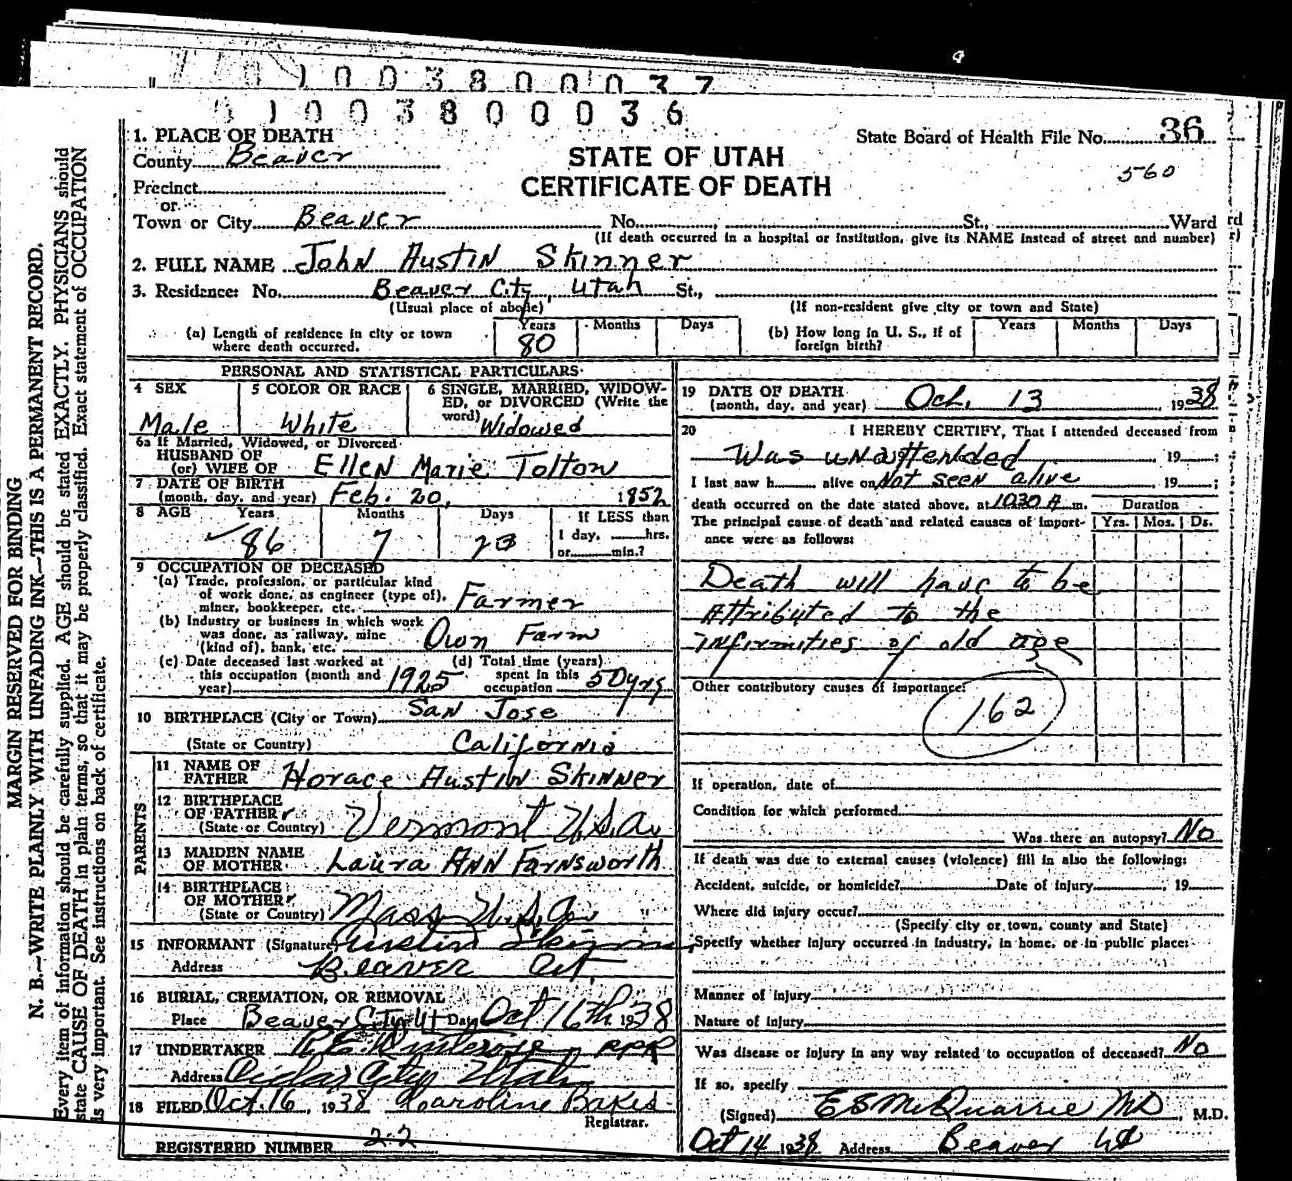 1003800037
01003800036
1. PLACE OF DEATH
County Beaver
State Board of Health File No. 36
560
STATE OF UTAH
CERTIFICATE OF DEATH
Precinct
or
Town or City Beaver No. St., Ward
(If death occurred in a hospital or institution, give its NAME instead of street and number)
2. FULL NAME John Austin Skinner
3. Residence: No. Beaver City, Utah St.,
(Usual place of abode) (If non-resident give city or town and State)
(a) Length of residence in city or town where death occurred. Years 80 Months Days
(b) How long in U. S., if of foreign birth? Years Months Days
PERSONAL AND STATISTICAL PARTICULARS
4 SEX Male
5 COLOR OR RACE White
6 SINGLE, MARRIED, WIDOWED, or DIVORCED (Write the word) Widowed
6a If Married, Widowed, or Divorced
HUSBAND OF
(or) WIFE OF Ellen Marie Tolton
7 DATE OF BIRTH
(month, day, and year) Feb. 20, 1852
8 AGE Years 86 Months 7 Days 23 If LESS than 1 day, hrs. or min.?
9 OCCUPATION OF DECEASED
(a) Trade, profession, or particular kind
of work done, as engineer (type of),
miner, bookkeeper, etc. Farmer
(b) Industry or business in which work
was done, as railway, mine
(kind of), bank, etc. Own Farm
(c) Date deceased last worked at this occupation (month and year) 1925
(d) Total time (years) spent in this occupation 50 yrs
10 BIRTHPLACE (City or Town) San Jose
(State or Country) California
PARENTS
11 NAME OF FATHER Horace Austin Skinner
12 BIRTHPLACE OF FATHER
(State or Country) Vermont U.S.A.
13 MAIDEN NAME OF MOTHER Laura Ann Farnsworth
14 BIRTHPLACE OF MOTHER
(State or Country) Mass U.S.A.
15 INFORMANT (Signature) Austin Skinner
Address Beaver Ut.
16 BURIAL, CREMATION, OR REMOVAL
Place Beaver City Ut Date Oct 16th 1938
17 UNDERTAKER
Address Cedar City Utah
18 FILED Oct. 16, 1938 Caroline
Registrar.
REGISTERED NUMBER 22
19 DATE OF DEATH
(month, day, and year) Oct. 13, 1938
20 I HEREBY CERTIFY, That I attended deceased from
Was unattended 19 ;
I last saw h alive on Not seen alive, 19 ;
death occurred on the date stated above, at 1030 A m.
Duration
The principal cause of death and related causes of importance were as follows: Yrs. Mos. Ds.
Death will have to be
attributed to the
infirmities of old age
Other contributory causes of importance:
162
If operation, date of
Condition for which performed
Was there an autopsy? No
If death was due to external causes (violence) fill in also the following:
Accident, suicide, or homicide? Date of injury , 19
Where did injury occur?
(Specify city or town, county and State)
Specify whether injury occurred in industry, in home, or in public place:
Manner of injury
Nature of injury
Was disease or injury in any way related to occupation of deceased? No
If so, specify
(Signed) E S McQuarrie MD, M.D.
Oct 14 1938 Address Beaver Ut
MARGIN RESERVED FOR BINDING
N. B.—WRITE PLAINLY WITH UNFADING INK—THIS IS A PERMANENT RECORD.
Every item of information should be carefully supplied. AGE should be stated EXACTLY. PHYSICIANS should
state CAUSE OF DEATH in plain terms, so that it may be properly classified. Exact statement of OCCUPATION
is very important. See instructions on back of certificate.